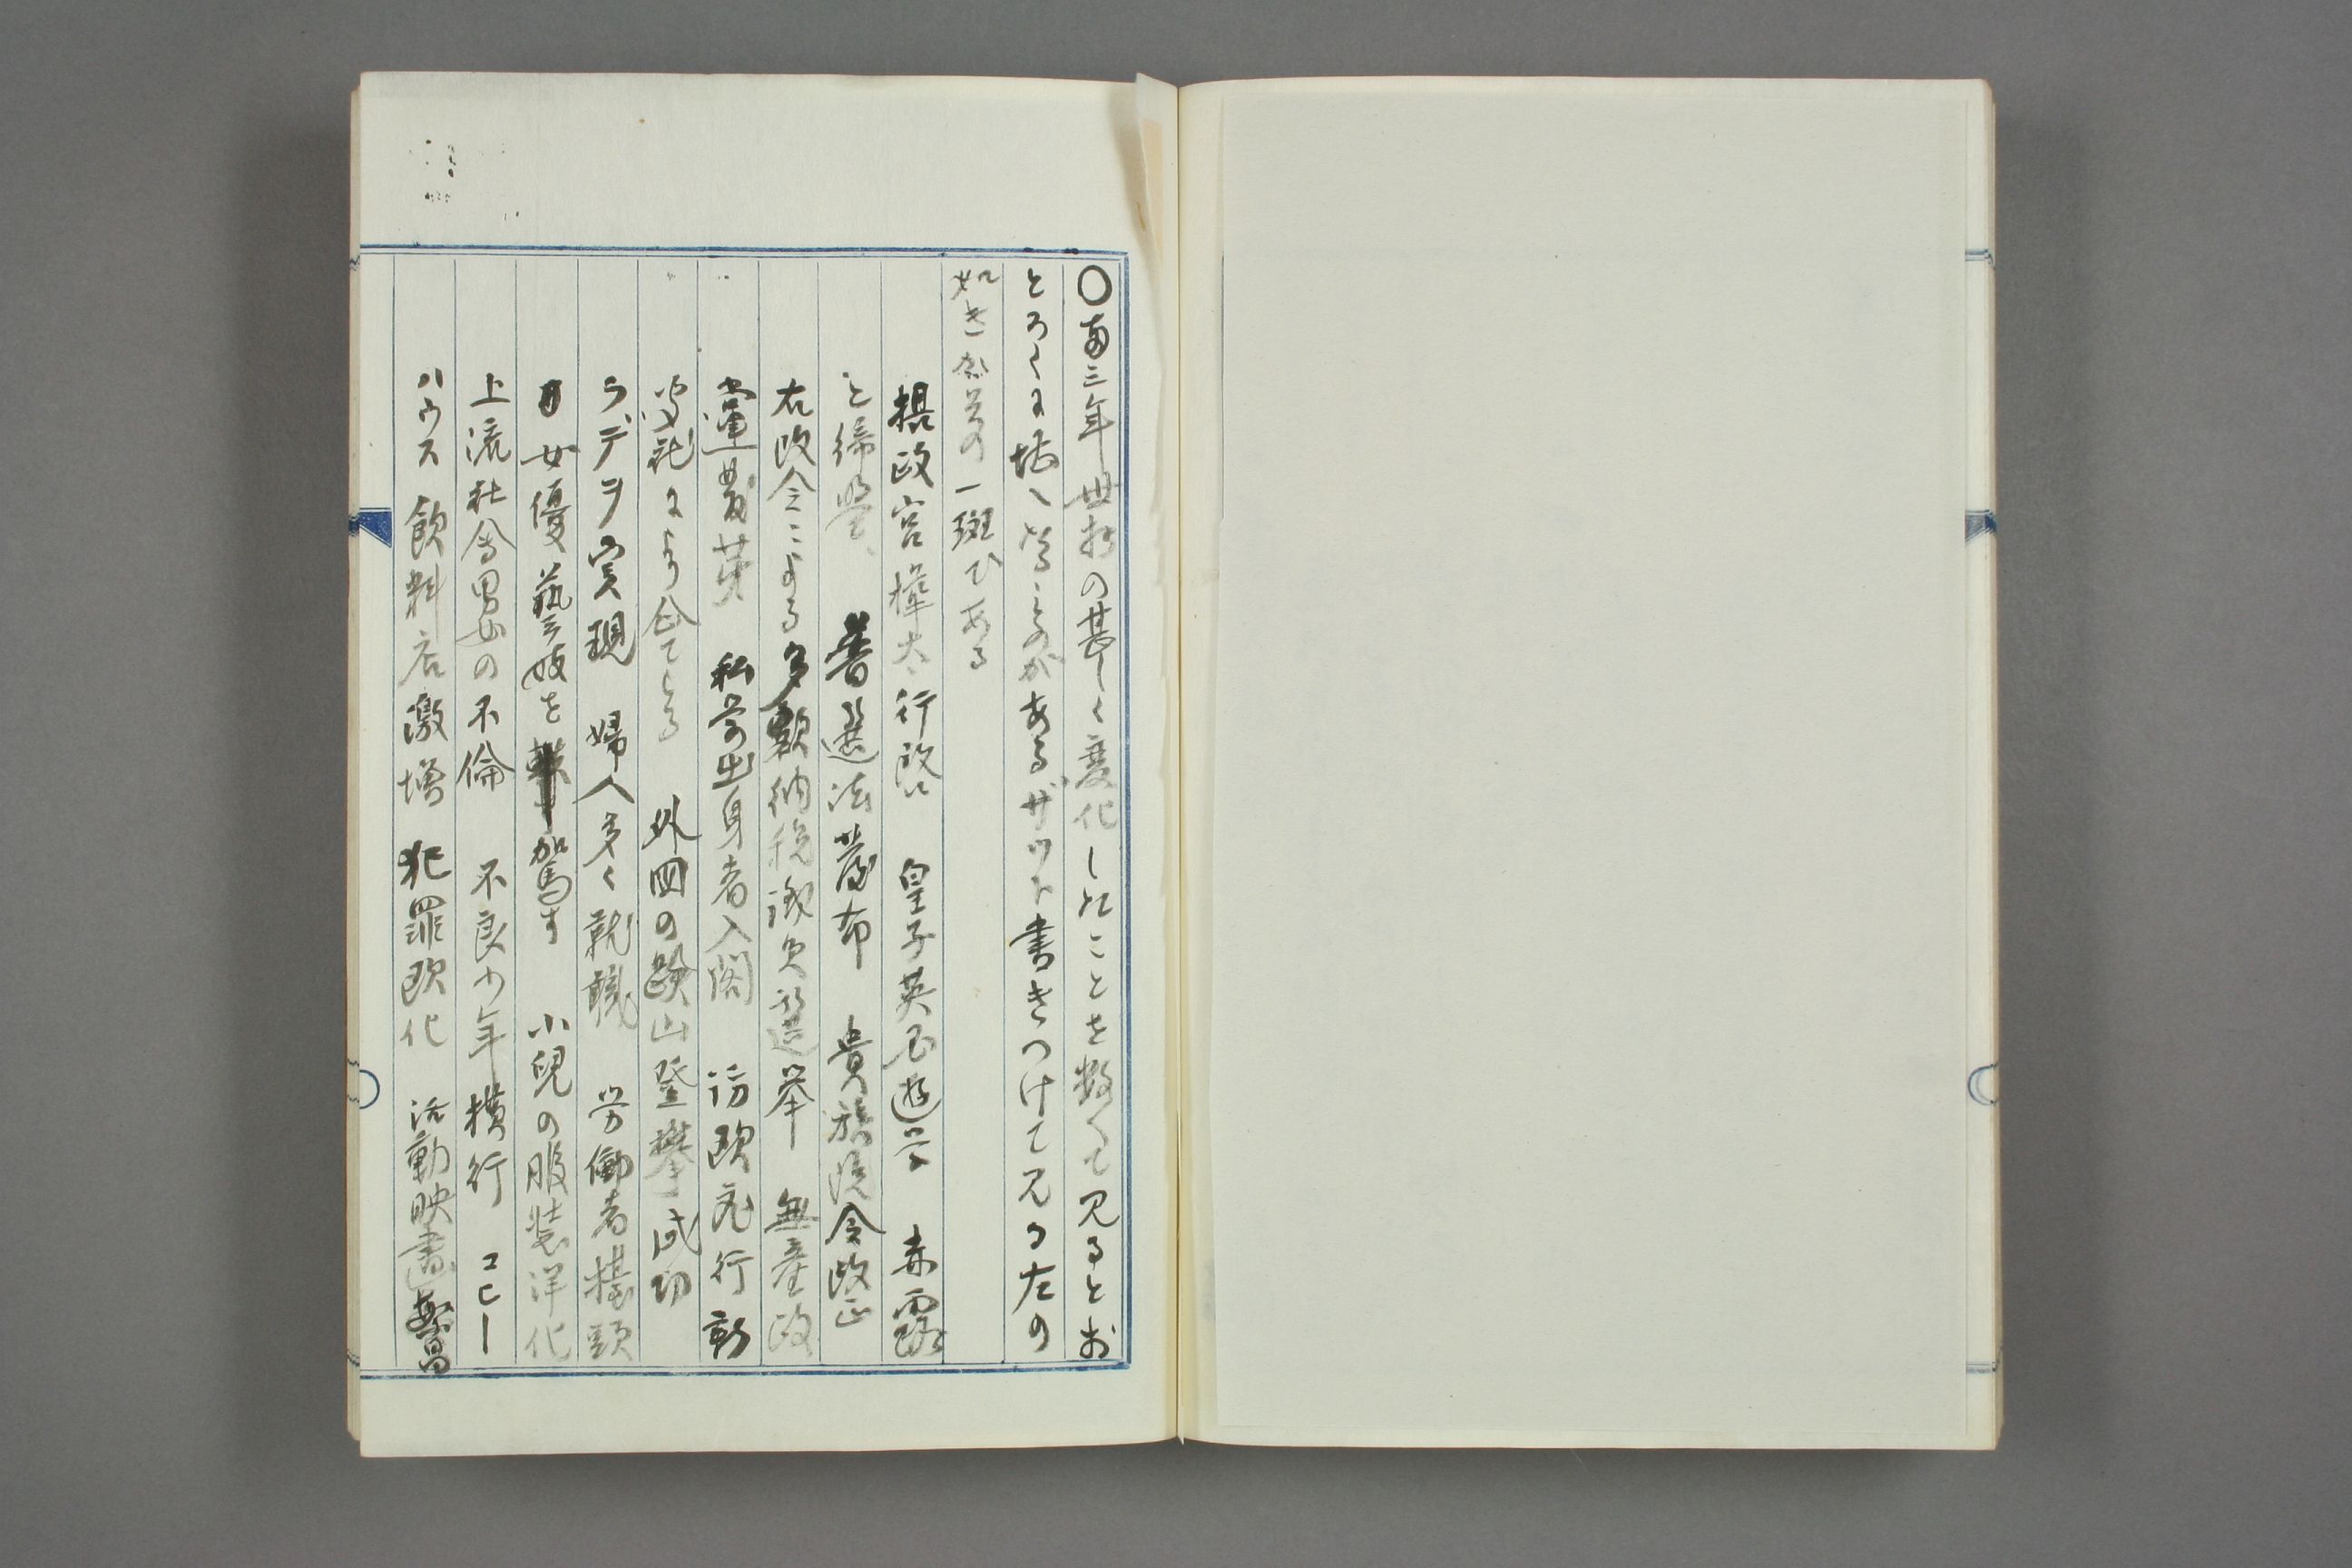 〇両三年世相の甚しく変化したことを数へて見るとお
とろくに堪へぬことのがあるザツト書きつけて見る左の
如き 一斑である
摂政宮樺太行啓 皇子英国遊学 赤露
と締盟、 普選法発布 貴族院令改正
右改令による多額納税議員選挙 無産政
党発芽 私学出身者入閣 訪欧飛行新
聞社により企てらる 外国の険山登攀成功
ラデヲ実現 婦人多く就職 労働者擡頭
女優藝妓を凌駕す 小児の服装洋化
上流社会男女の不倫 不良少年横行 コヒー
ハウス飲料店激増 犯罪欧化 活動映画繁昌